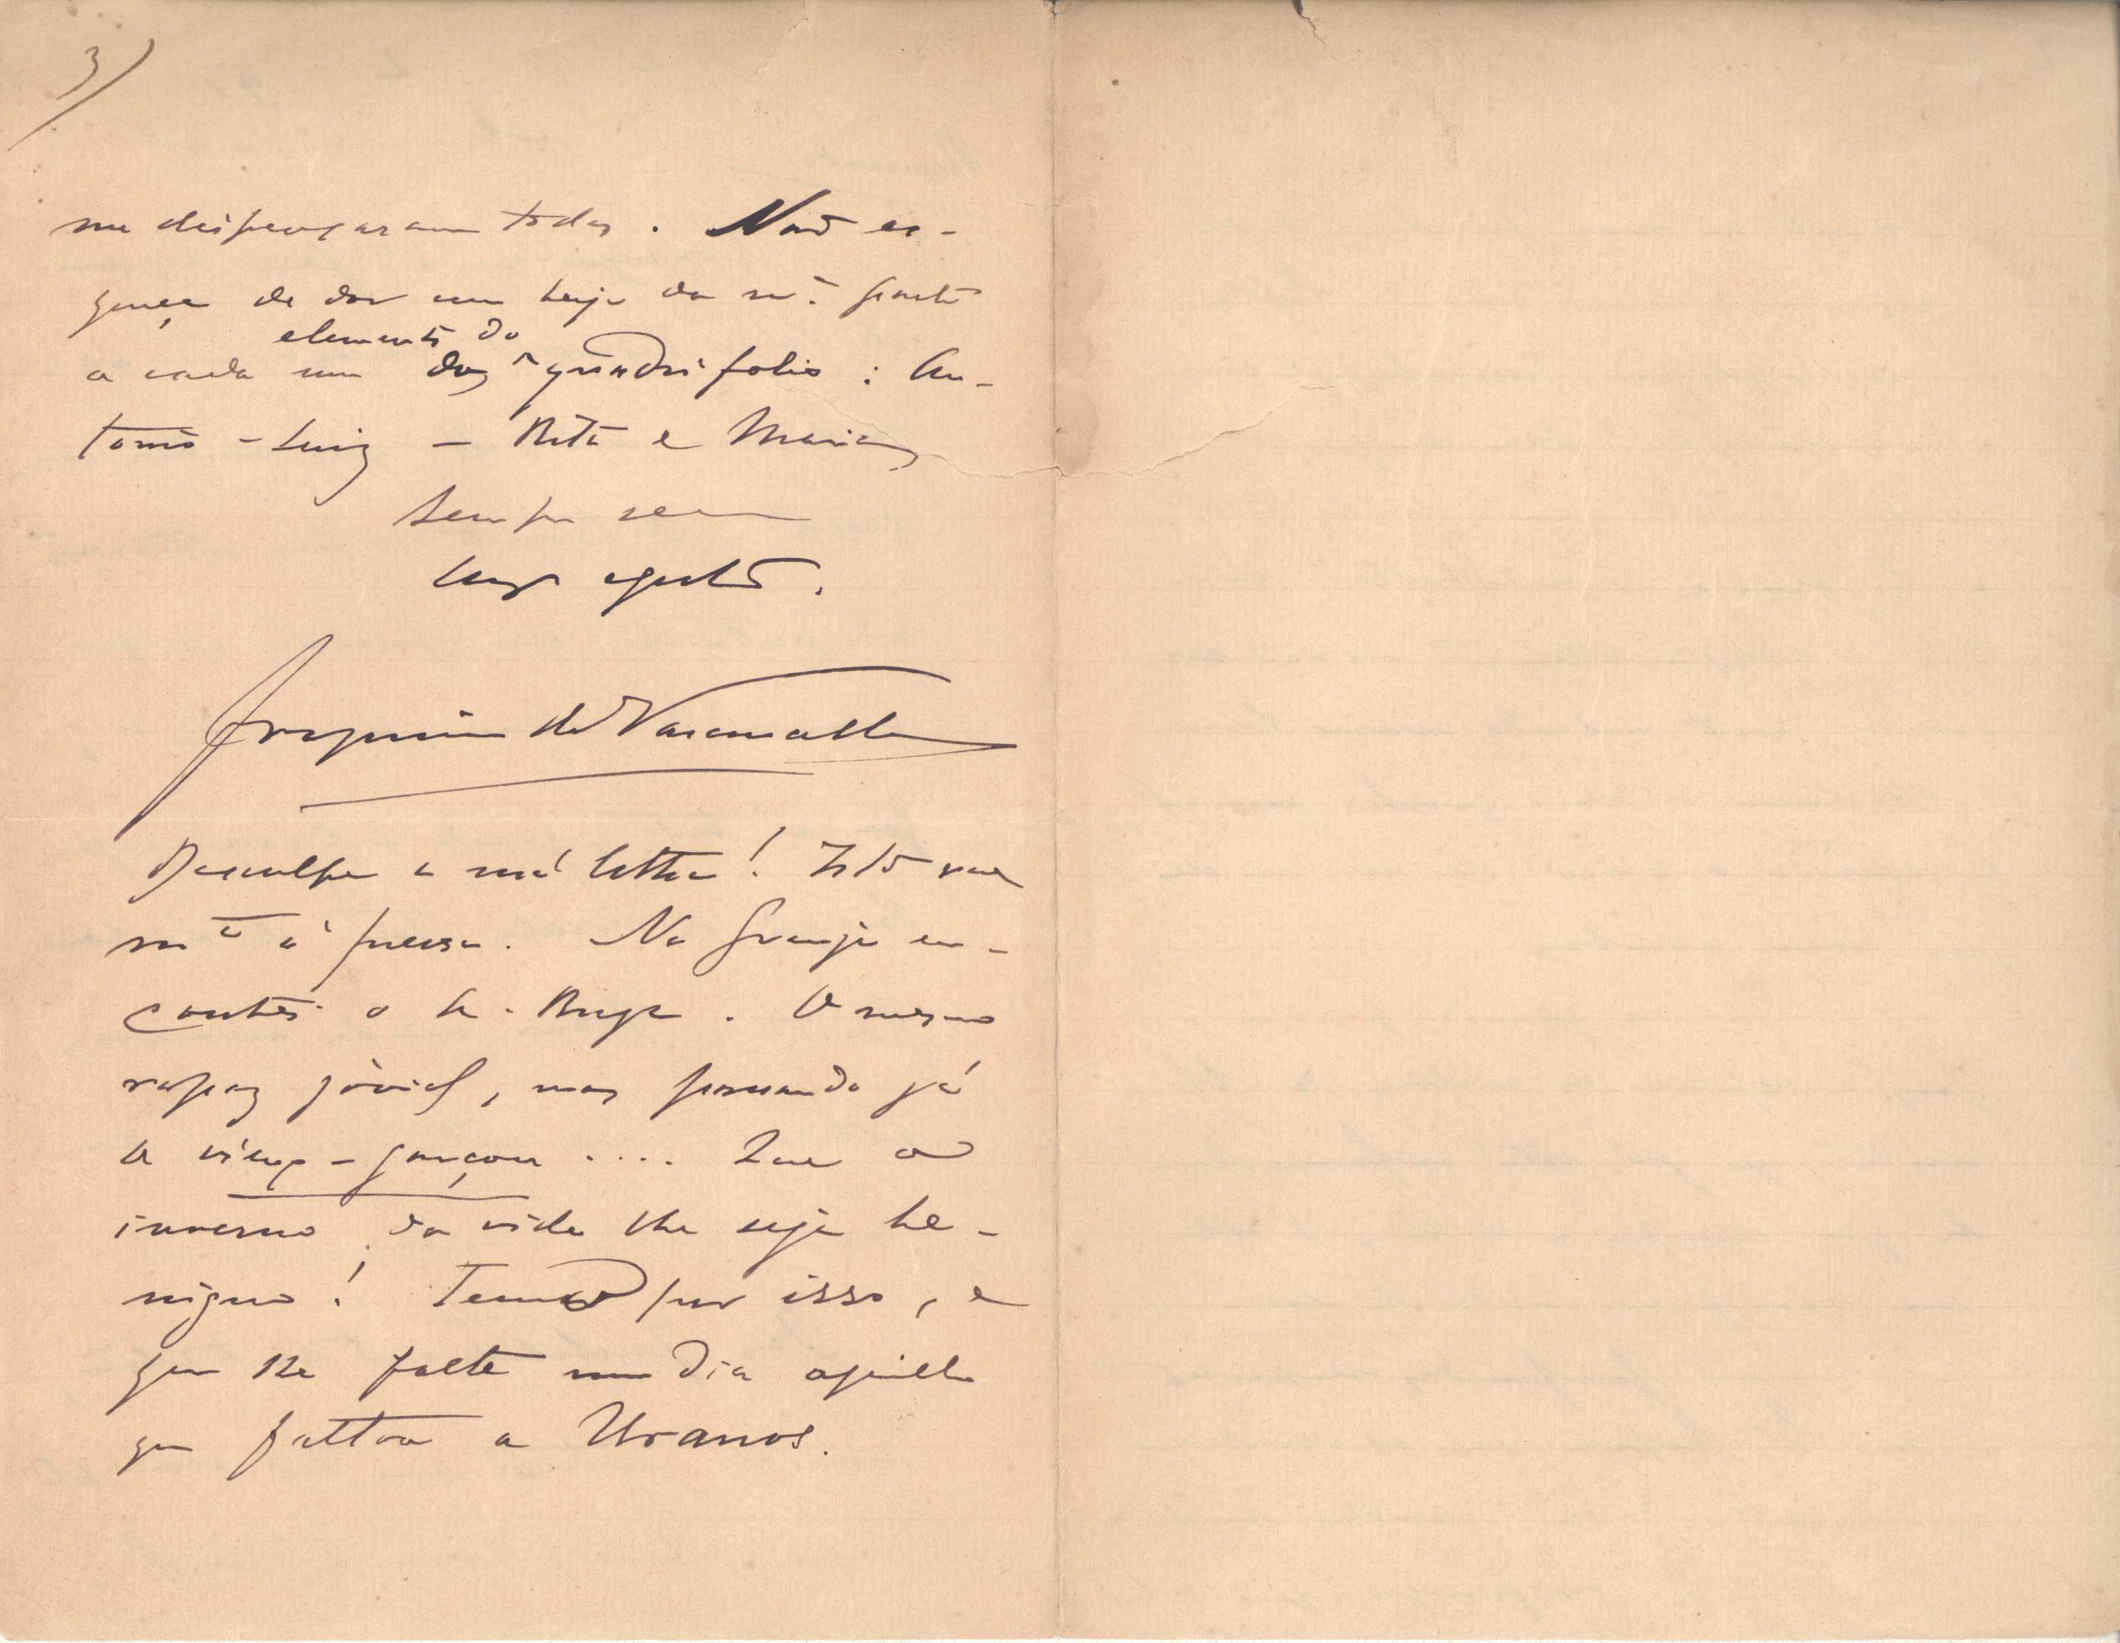 3)
me dispensaram todos. Não es-
queça de dar um beijo da m.ª parte
elementos do
a cada um dos ^ quadrifolio: An-
tonio - Luiz - Rita e Maria
Sempre seu
amº affectº.
Joaquim de Vasconcellos
Desculpe a má lettra! Isto vae
mtº á pressa. Na Granja en-
contrei o Sr. . O mesmo
rapaz jóvial, mas passando já
a vieux-garçon .... Que o
inverno da vida lhe seja be-
nigno! Temo por isso, e
que lhe falte um dia aquillo
que faltou a Uranos.